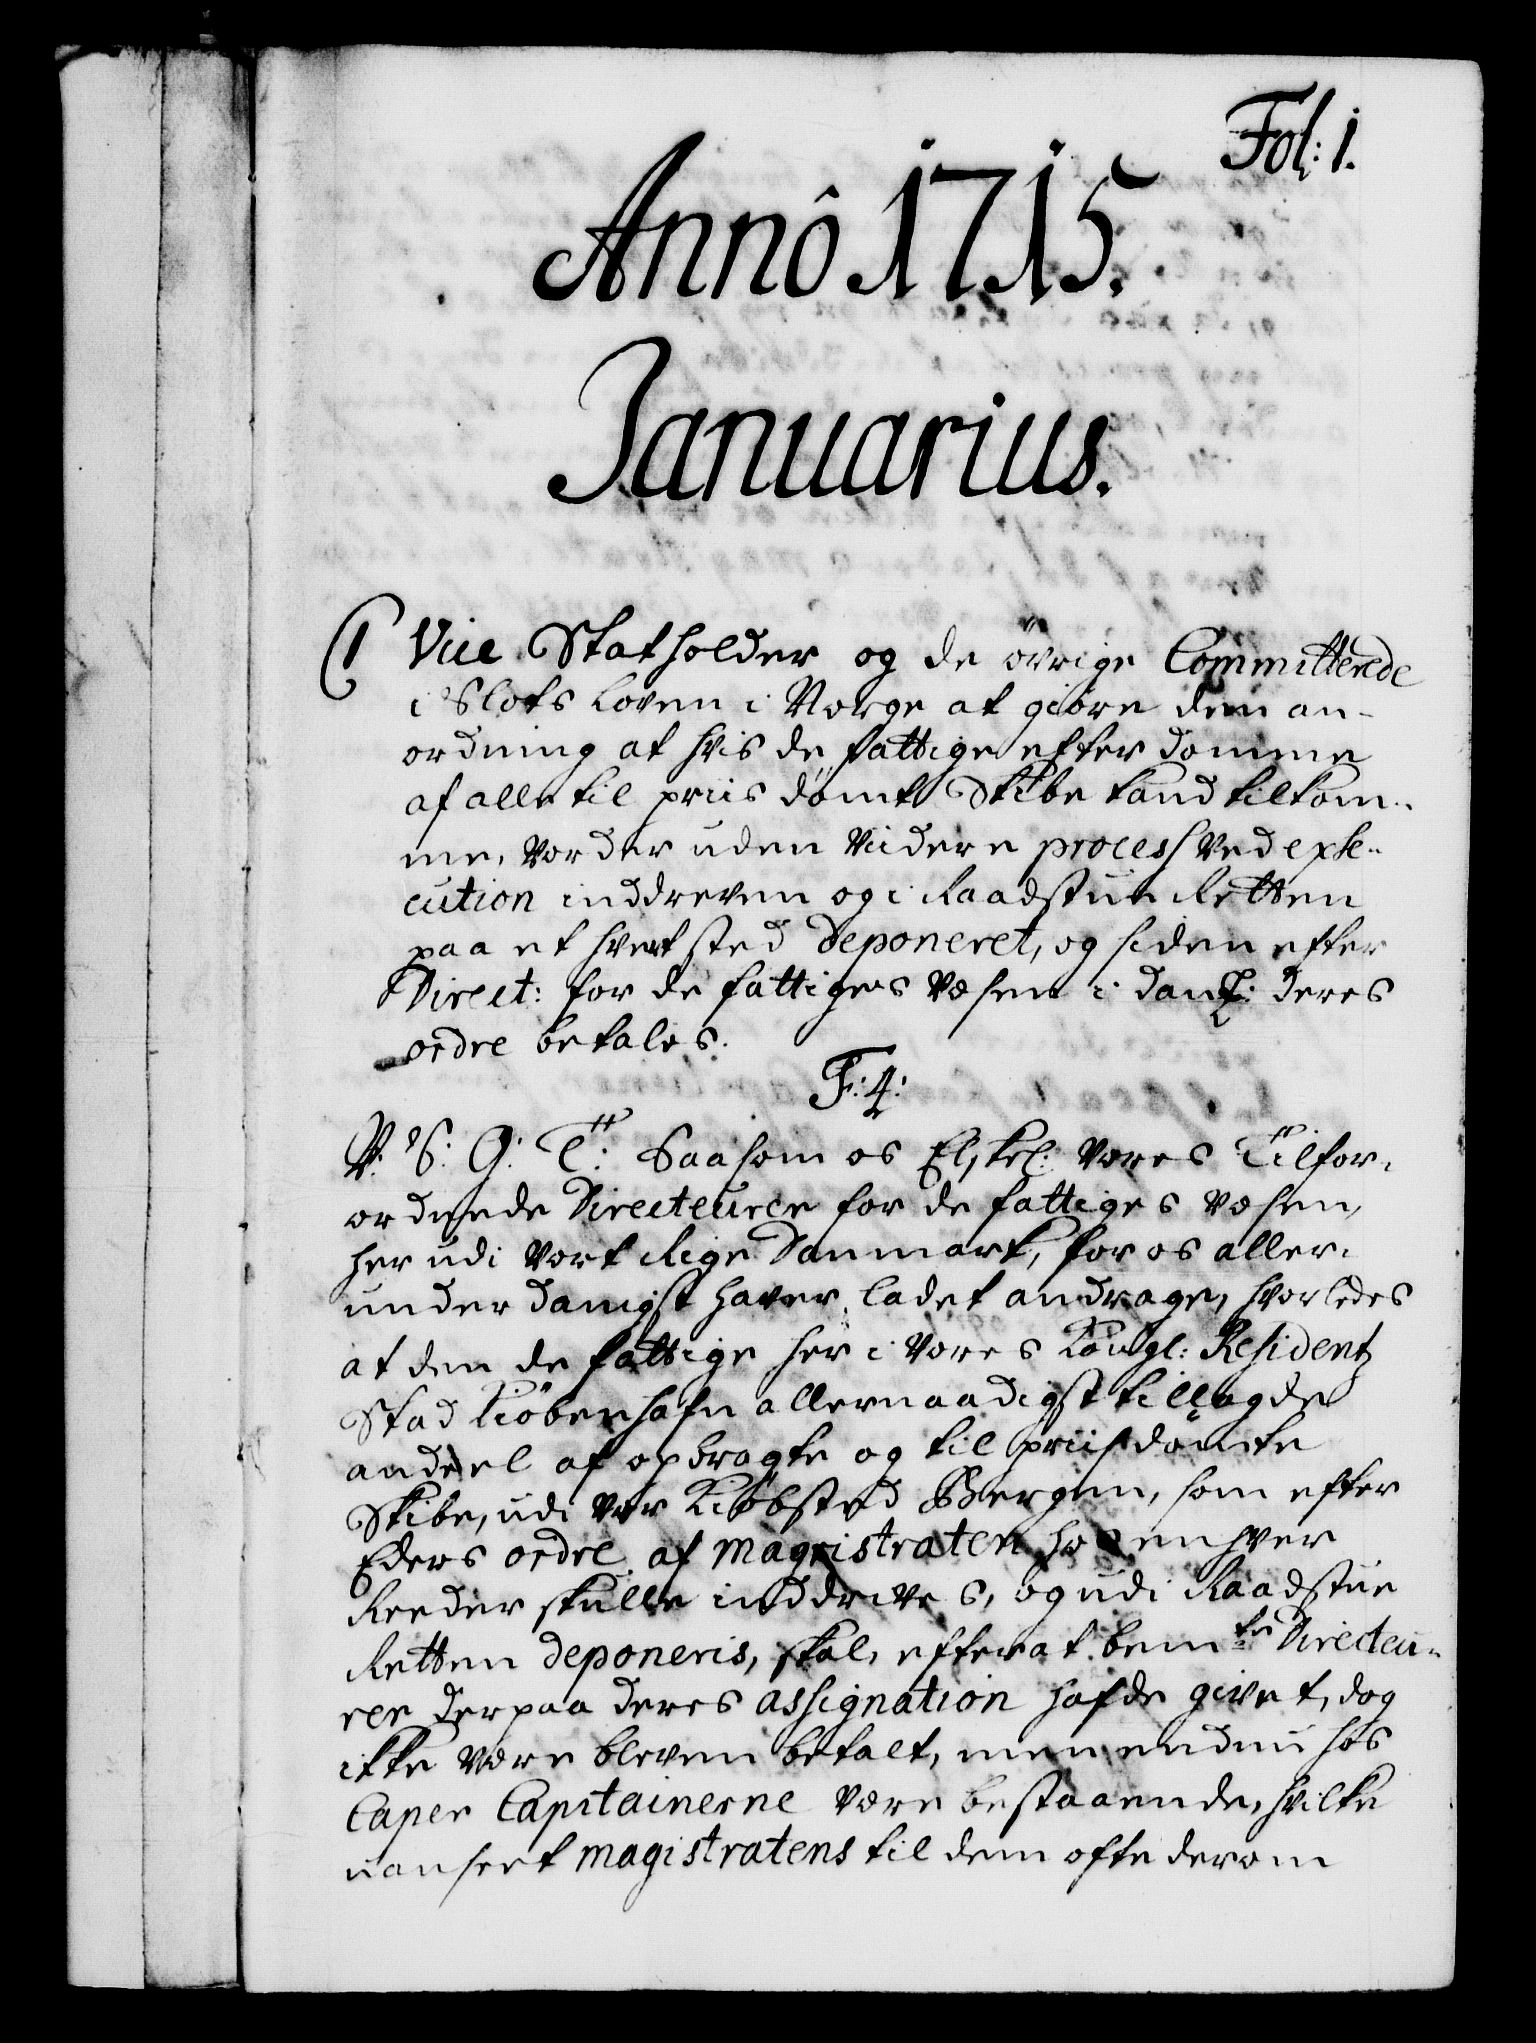 Fol: 1.
Annô 1715.
Januarius.
1 Vice Statholder og de övrige Committerede
i Slots Loven i Norge at giöre den an-
ordning at hvis de fattige efter domme
af alle til priis dömte Skibe kand tilkom-
me, vorder uden viidere process ved exse-
cution inddreven og i Raadstue Retten
paa et hvert sted deponeret, og siden efter
Direct: for de fattiges Væsen i Danm: deres
ordre betales.
F: 4:
V. S. G. T: Saasom os Elskel: Vores Tilfor-
ordnede Directeurer for de fattiges Væsen,
her udi Vort Rige Danmark, for os aller-
underdanigst haver ladet andrage, hvorledes
at den de fattige her i Vores Kongl: Residentz
Stad Kiöbenhafn allernaadigst tillagde
andeel af opbragte og til priis dömte
Skibe, udi Vor Kiöbsted Bergen, som efter
Eders ordre af Magistraten hos enhver
Reeder skulle inddrives, og udi Raadstue
Retten deponeris, skal, efter at bem.te Directeu-
rer derpaa deres assignation hafde givet, dog
ikke være bleven betalt, men endnu hos
Caper Capitainerne være bestaaende, hvilke
uanseet magistratens til dem ofte derom